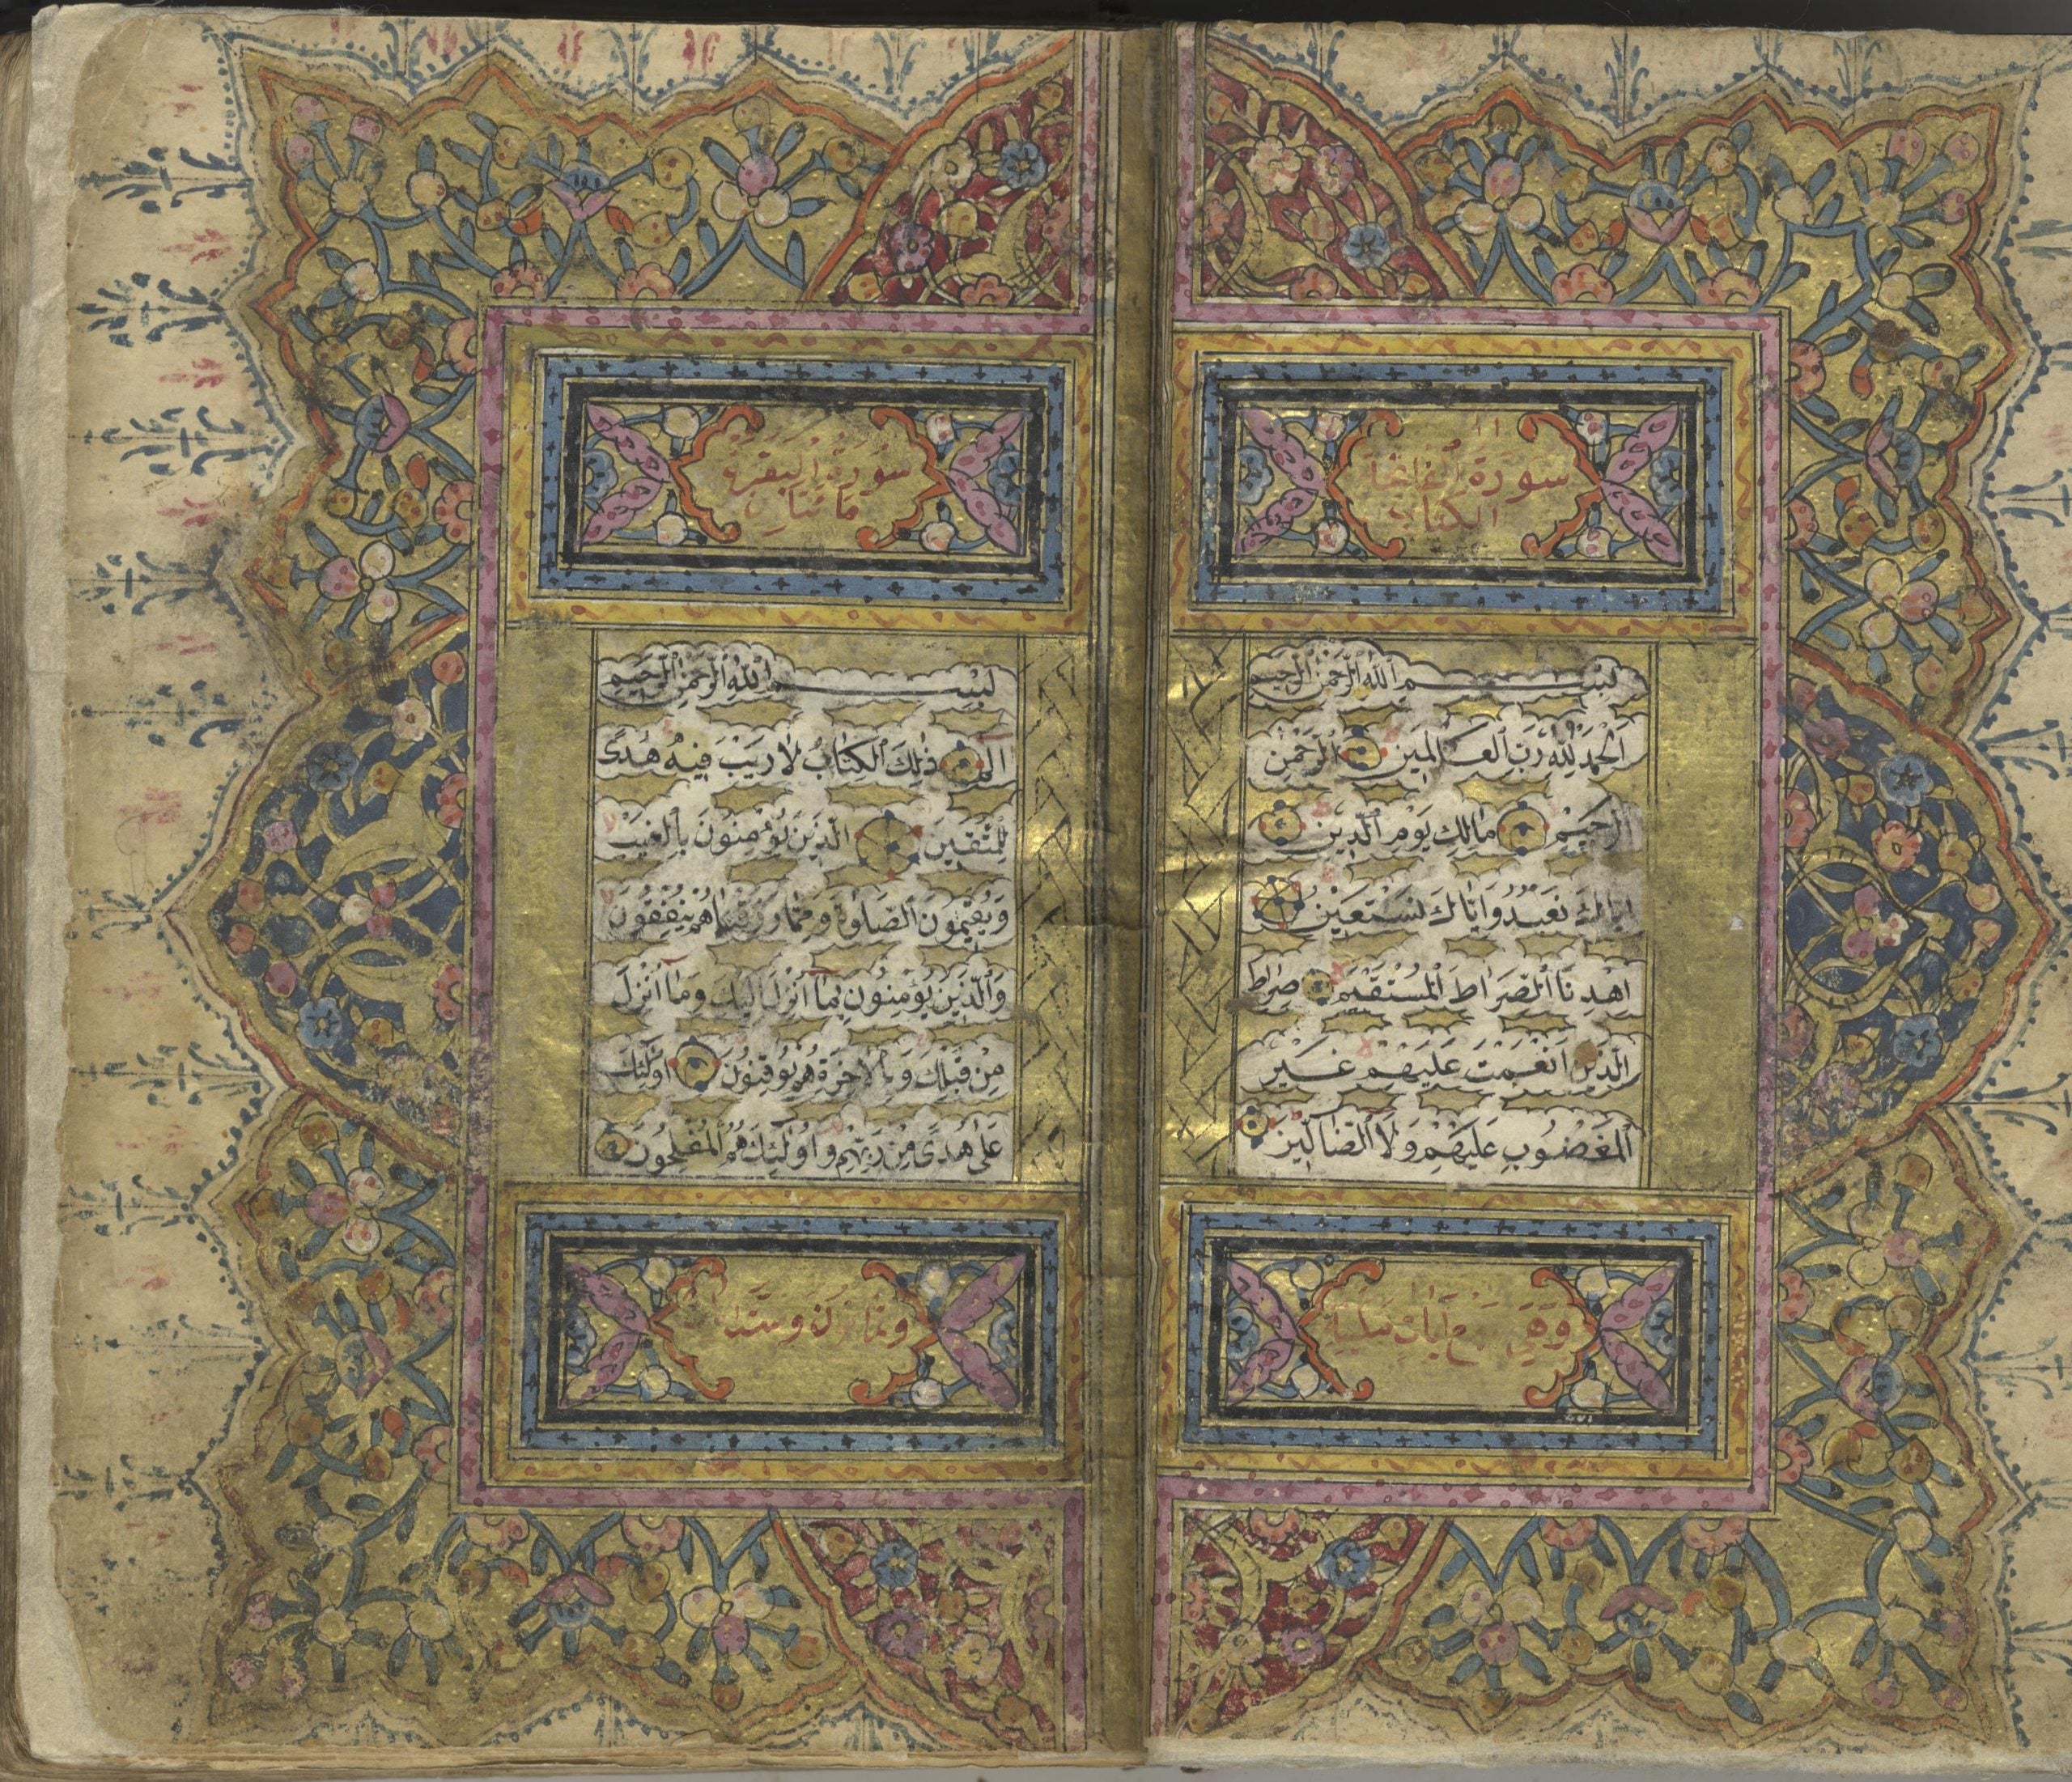 سورة الفاتحة
الكتاب
بِسْمِ اللّٰهِ الرَّحْمٰنِ الرَّحِيمِ
اَلْحَمْدُ لِلّٰهِ رَبِّ الْعَالَمِينَ الرَّحْمٰنِ
الرَّحِيمِ مَالِكِ يَوْمِ الدِّينِ
اِيَّاكَ نَعْبُدُ وَاِيَّاكَ نَسْتَعِينُ
اِهْدِنَا الصِّرَاطَ الْمُسْتَقِيمَ صِرَاطَ
الَّذِينَ اَنْعَمْتَ عَلَيْهِمْ غَيْرِ
الْمَغْضُوبِ عَلَيْهِمْ وَلَا الضَّالِّينَ
وَهِيَ آيات
سُورَةُ الْبَقَرَةِ
مائتان
بِسْمِ اللّٰهِ الرَّحْمٰنِ الرَّحِيمِ
الٓمٓ ذٰلِكَ الْكِتَابُ لَا رَيْبَ فِيهِ هُدًى
لِلْمُتَّقِينَ الَّذِينَ يُؤْمِنُونَ بِالْغَيْبِ
وَيُقِيمُونَ الصَّلٰوةَ وَمِمَّا رَزَقْنَاهُمْ يُنْفِقُونَ
وَالَّذِينَ يُؤْمِنُونَ بِمَا اُنْزِلَ اِلَيْكَ وَمَا اُنْزِلَ
مِنْ قَبْلِكَ وَبِالْاٰخِرَةِ هُمْ يُوقِنُونَ اُولٰئِكَ
عَلٰى هُدًى مِنْ رَبِّهِمْ وَاُولٰئِكَ هُمُ الْمُفْلِحُونَ
وثمانون